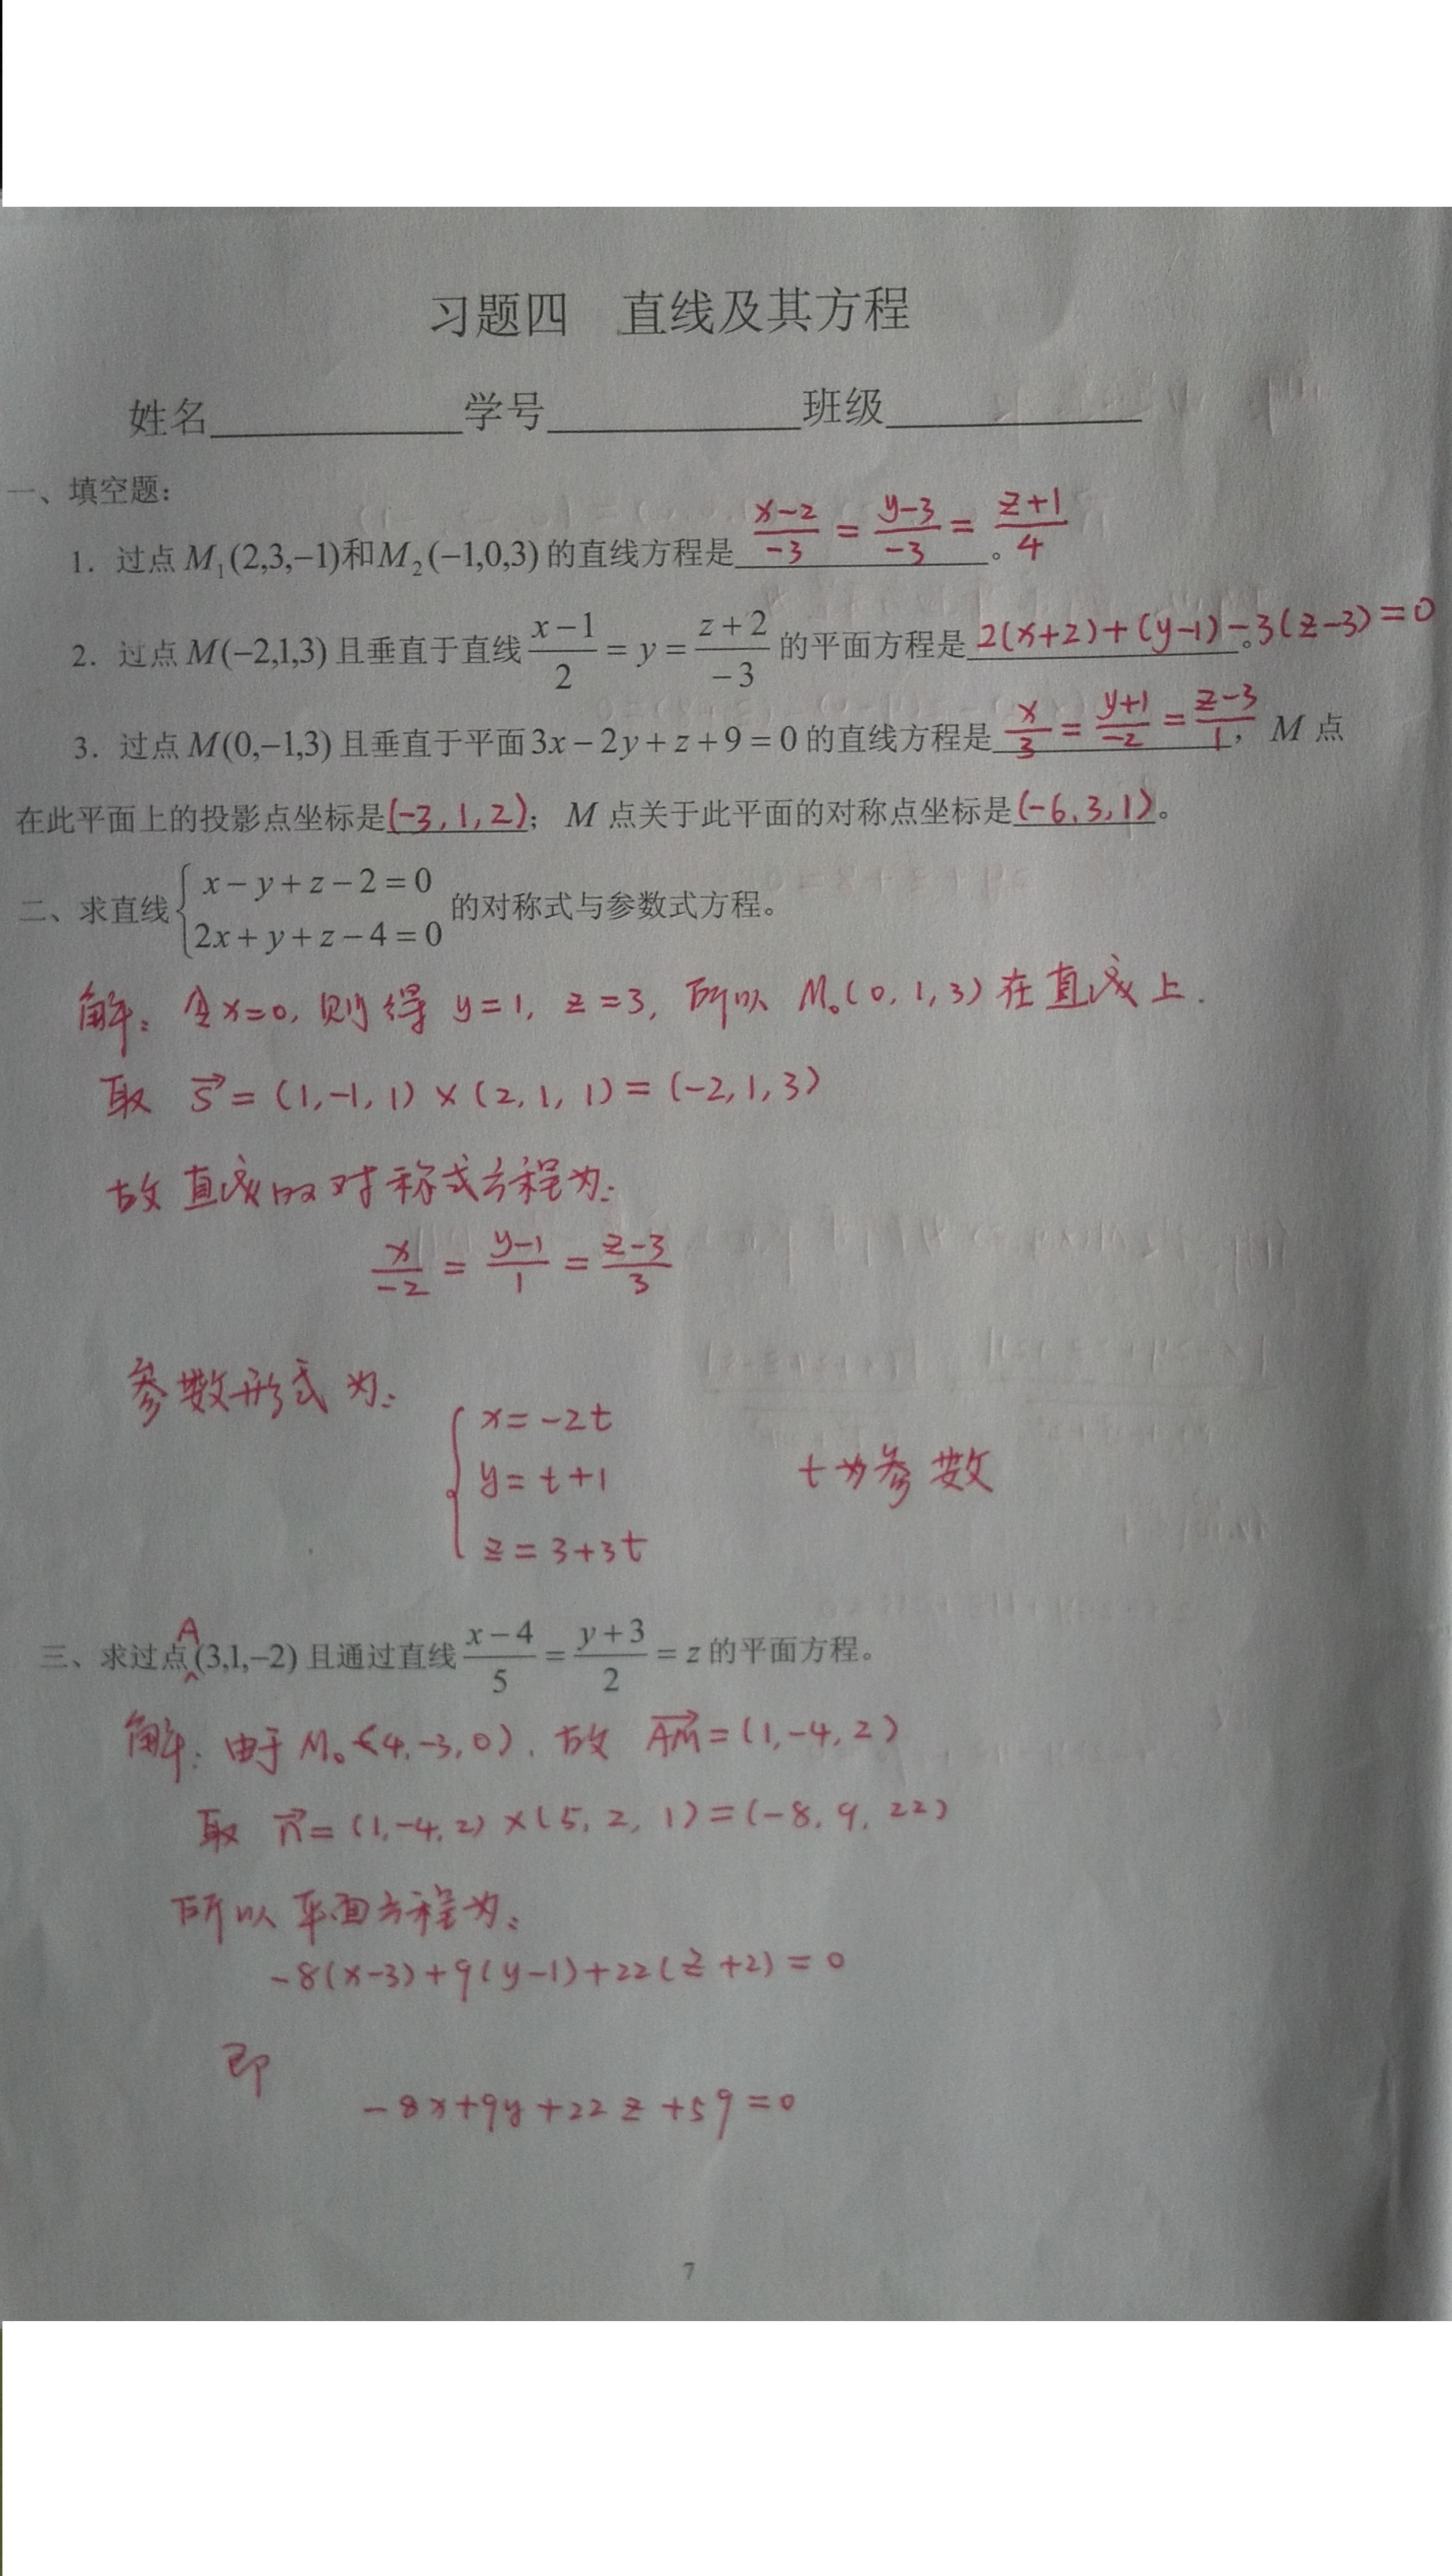 习题四 直线及其方程
姓名____________学号____________班级____________
一、填空题：
1. 过点 M₁(2,3,−1)和M₂(−1,0,3) 的直线方程是 (x−2)/(−3) = (y−3)/(−3) = (z+1)/4 。
2. 过点 M(−2,1,3) 且垂直于直线 (x−1)/2 = y = (z+2)/(−3) 的平面方程是 2(x+2)+(y−1)−3(z−3)=0 。
3. 过点 M(0,−1,3) 且垂直于平面 3x−2y+z+9=0 的直线方程是 x/3 = (y+1)/(−2) = (z−3)/1 ， M 点
在此平面上的投影点坐标是(−3,1,2)； M 点关于此平面的对称点坐标是(−6,3,1)。
二、求直线 { x−y+z−2=0
2x+y+z−4=0 的对称式与参数式方程。
解：令x=0, 则得 y=1, z=3, 所以 M₀(0,1,3) 在直线上.
取 s⃗ = (1,−1,1)×(2,1,1) = (−2,1,3)
故直线的对称式方程为：
x/(−2) = (y−1)/1 = (z−3)/3
参数形式为：
{ x=−2t
y=t+1 t为参数
z=3+3t
A
三、求过点(3,1,−2) 且通过直线 (x−4)/5 = (y+3)/2 = z 的平面方程。
解：由于 M₀(4,−3,0), 故 AM⃗ = (1,−4,2)
取 n⃗ = (1,−4,2)×(5,2,1)=(−8,9,22)
所以平面方程为：
−8(x−3)+9(y−1)+22(z+2)=0
即
−8x+9y+22z+59=0
7